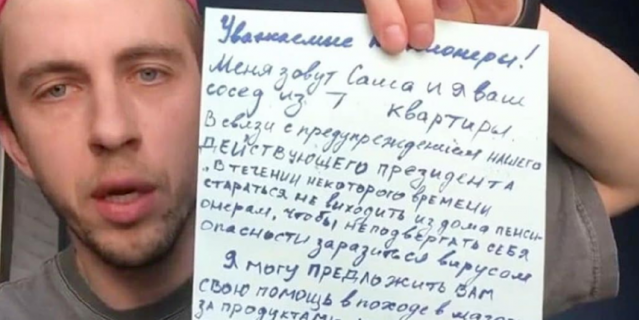 Уважаемые пенсионеры!
Меня зовут Саша и я ваш
сосед из 7 квартиры.
В связи с предупреждением нашего
ДЕЙСТВУЮЩЕГО ПРЕЗИДЕНТА
„В ТЕЧЕНИИ НЕКОТОРОГО ВРЕМЕНИ
СТАРАТЬСЯ НЕ ВЫХОДИТЬ ИЗ ДОМА ПЕНСИ-
ОНЕРАМ, ЧТОБЫ НЕПОДВЕРГАТЬ СЕБЯ
ОПАСНОСТИ ЗАРАЗИТЬСЯ ВИРУСОМ
Я МОГУ ПРЕДЛОЖИТЬ ВАМ
СВОЮ ПОМОЩЬ В ПОХОДЕ В МАГАЗ
ЗА ПРОДУКТАМИ